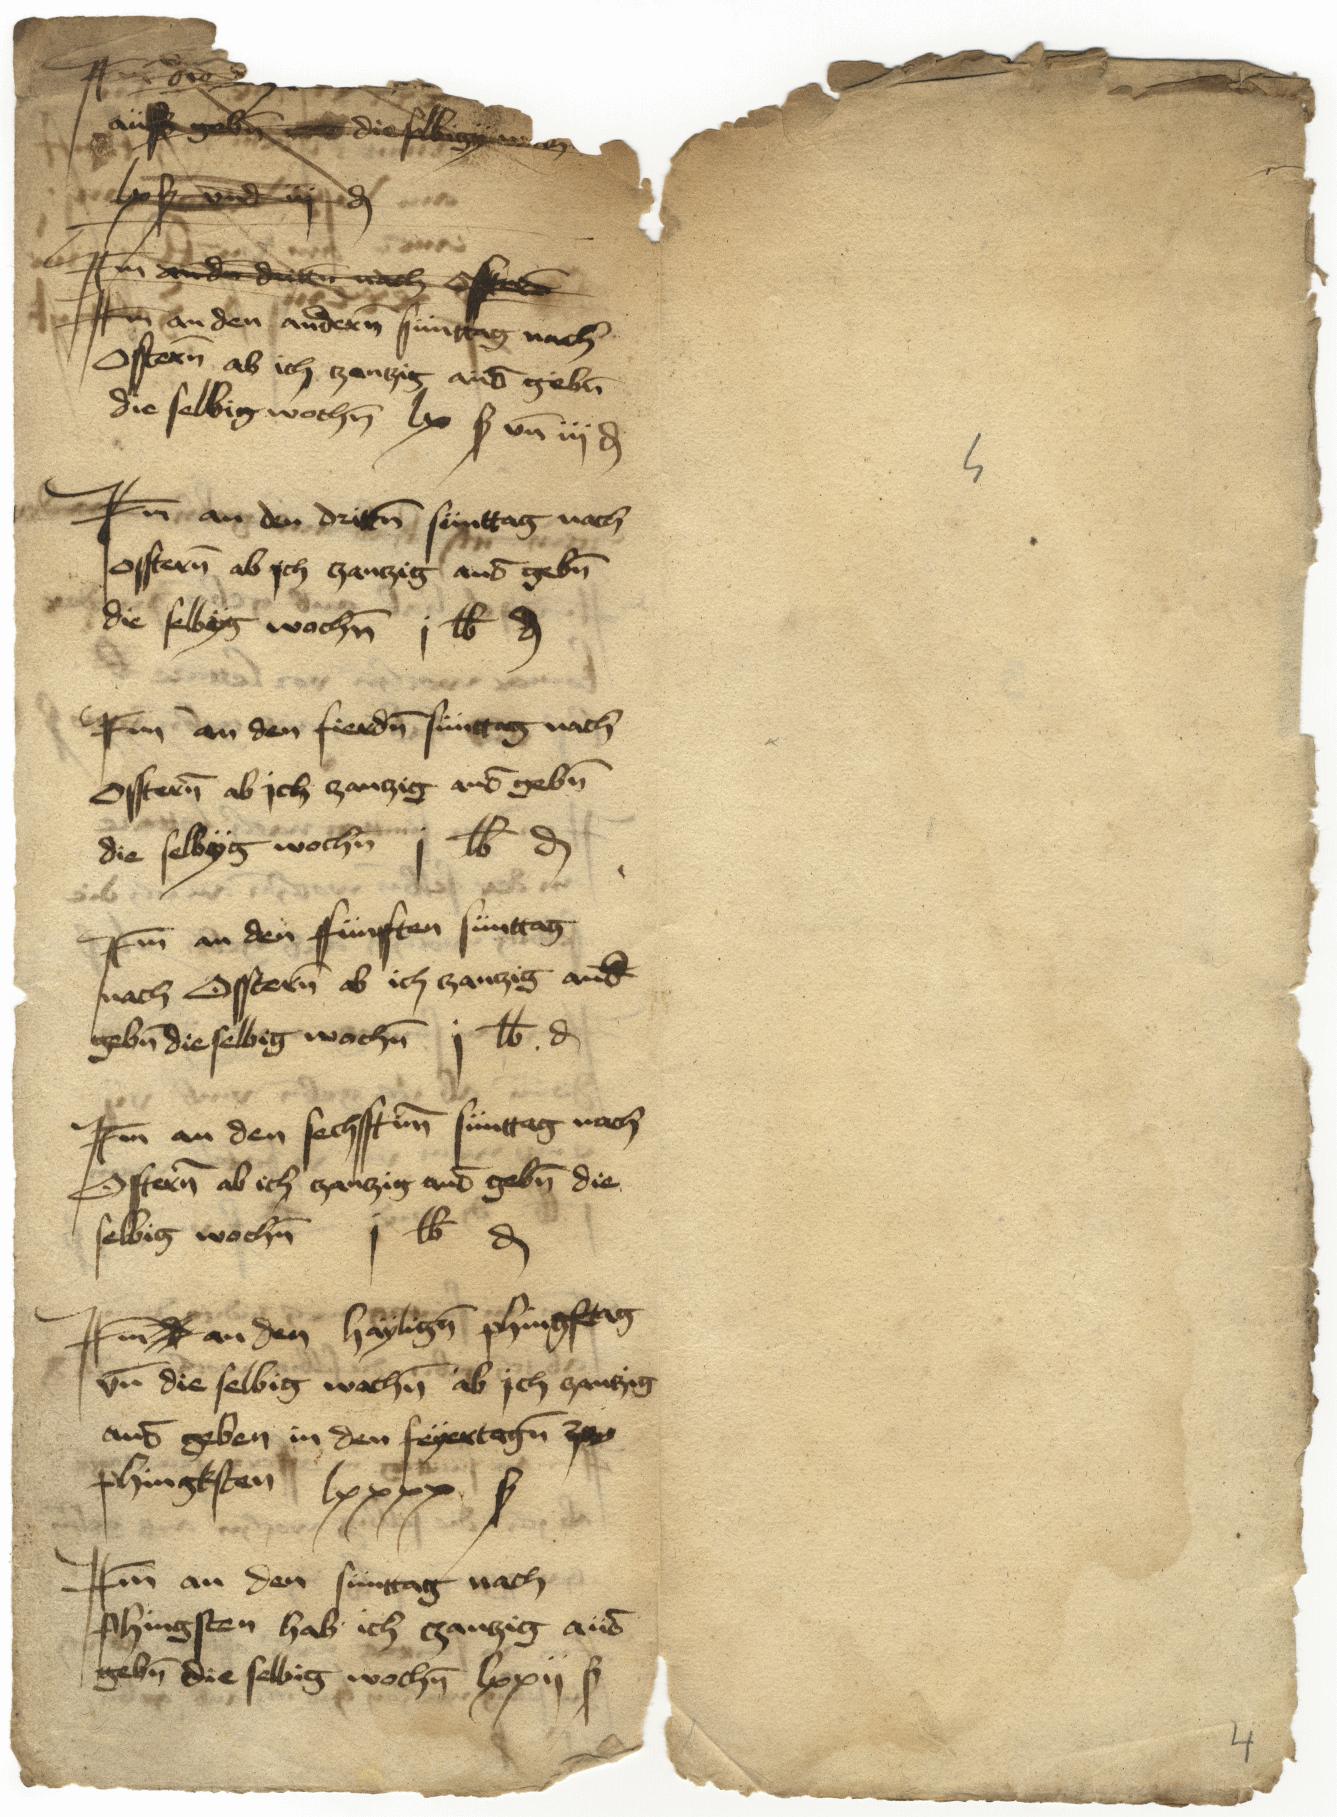 auss gebn̄ die selbigÿ
lx ß vnd iij ₰
Itm̄ an dn̄ drittn̄ nach ostern̄
Itm̄ an den andern̄ sünttag nach
Ostern̄ ab ich zanzig aus gebn̄
die selbig wochn̄ lx ß vn̄ iij ₰
Itm̄ an den drittn̄ sünttag nach
ostern̄ ab jch zanzig aus gebn̄
die selbÿg wochn̄ j lb ₰
Itm̄ an den fierdn̄ sünttag nach
Ostern̄ ab jch zanzig aus gebn̄
die selbÿg wochn̄ j lb ₰
Itm̄ an den ffünften sünttag
nach Ostern̄ ab ich zanzig aus
gebn̄ die selbig wochn̄ j lb ₰
Itm̄ an den sechsstnn̄ sünttag nach
Ostern̄ ab ich zanzig aus gebn̄ die
selbig wochn̄ j lb ₰
Itm̄ an den haÿlign̄ phingstag
vn̄ die selbig wochn̄ ab jch zanzig
aus geben in den feÿertagn̄
phingksten lxxxx ß
Itm̄ an den sünttag nach
phingsten hab ich zanzig aus
gebn̄ die selbig wochn̄ lxxij ß
4